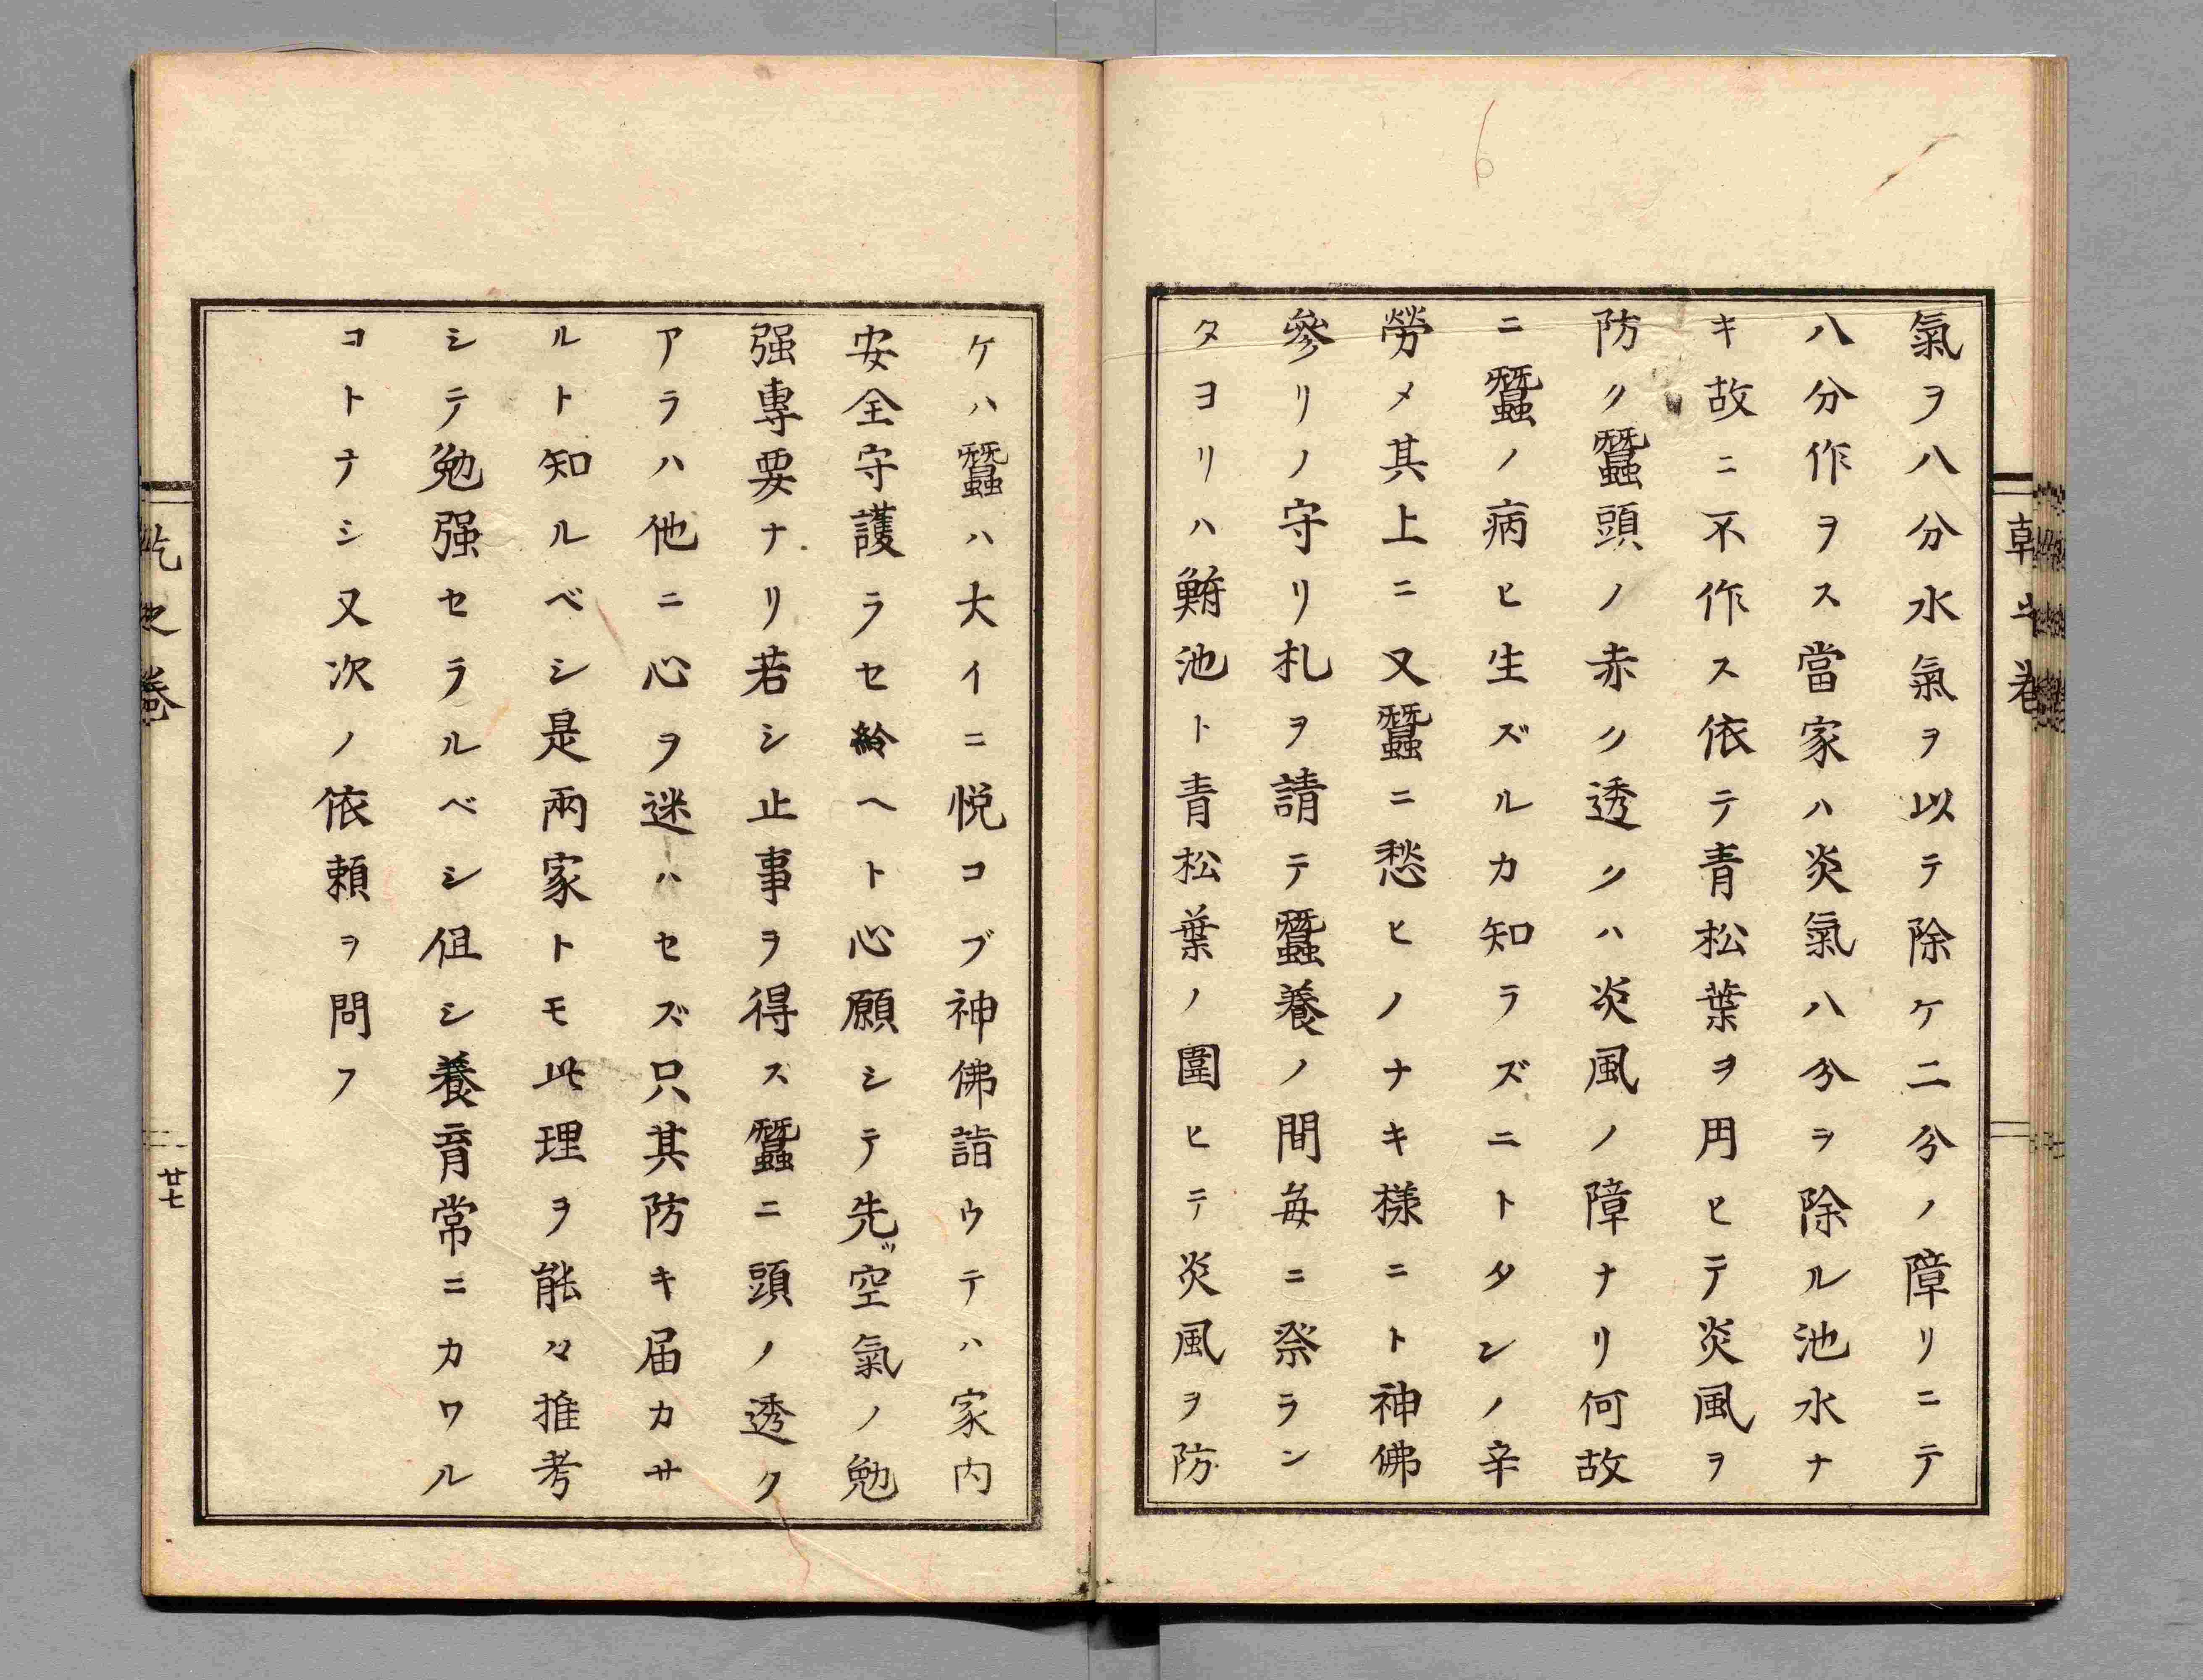 氣ヲ八分水氣ヲ以テ除ケ二分ノ障リニテ
八分作ヲス當家ハ炎氣八分ヲ除ル池水ナ
キ故ニ不作ス依テ青松葉ヲ円ヒテ炎風ヲ
防ク蠶頭ノ赤ク透クハ炎風ノ障ナリ何故
ニ蠶ノ病ヒ生ズルカ知ラズニトタンノ辛
勞メ其上ニ又蠶ニ愁ヒノナキ様ニト神佛
參リノ守リ札ヲ請テ蠶養ノ間毎ニ祭ラン
タヨリハ鮒池ト青松葉ノ圍ヒニテ炎風ヲ防
ケハ蠶ハ大イニ悦コブ神佛詣ウテハ家内
安全守護ラセ給ヘト心願シテ先ヅ空氣ノ勉
强專要ナリ若シ止事ヲ得ス蠶ニ頭ノ透ク
アラハ他ニ心ヲ迷ハセズ只其防キ届カサ
ルト知ルベシ是兩家トモ此理ヲ能々推考
シテ勉强セラルベシ但シ養育常ニカワル
コトナシ又次ノ依頼ヲ問フ
乾之卷
廿七